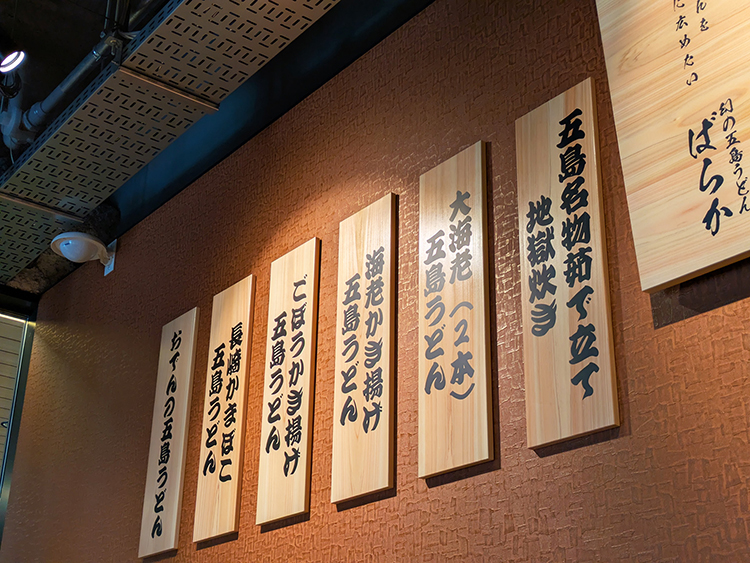 んを
に広めたい
幻の五島うどん
ばらか
五島名物茹で立て
地獄炊き
大海老（2本）
五島うどん
海老かき揚げ
五島うどん
ごぼうかき揚げ
五島うどん
長崎かまぼこ
五島うどん
おでんの五島うどん